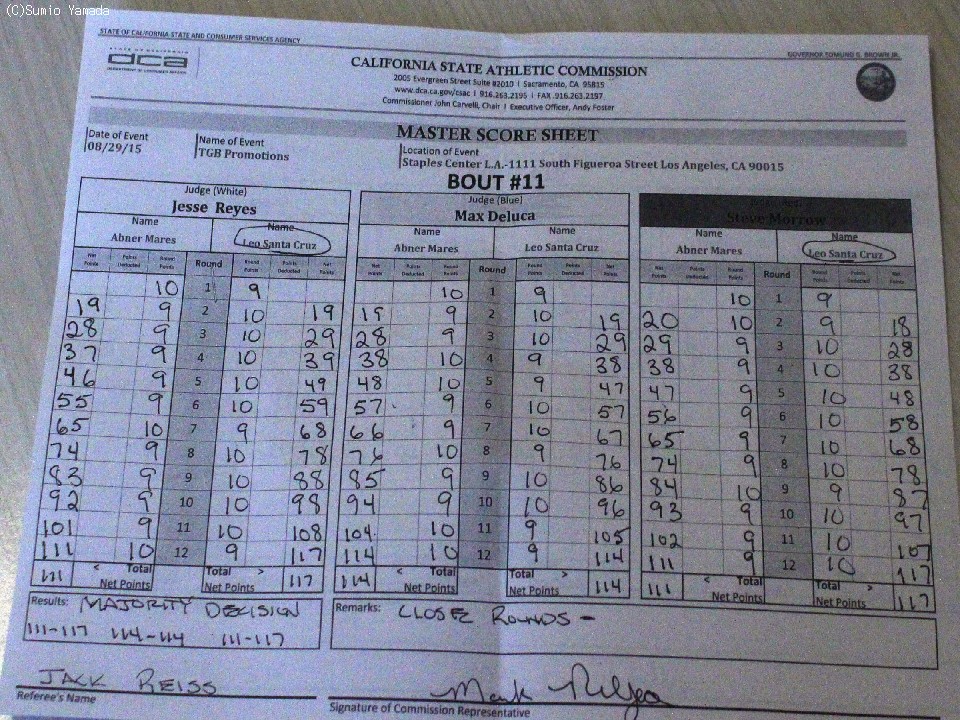 (C)Sumio Yamada
STATE OF CALIFORNIA STATE AND CONSUMER SERVICES AGENCY
GOVERNOR EDMUND G. BROWN JR.
dca
CALIFORNIA STATE ATHLETIC COMMISSION
2005 Evergreen Street Suite #2010 | Sacramento, CA 95815
www.dca.ca.gov/csac | 916.263.2195 | FAX 916.263.2197
Commissioner John Carvelli, Chair | Executive Officer, Andy Foster
MASTER SCORE SHEET
Date of Event Name of Event Location of Event
08/29/15 TGB Promotions Staples Center L.A.-1111 South Figueroa Street Los Angeles, CA 90015
BOUT #11
Judge (White) Judge (Blue)
Jesse Reyes Max Deluca Steve Morrow
Name Name Name Name Name Name
Abner Mares Leo Santa Cruz Abner Mares Leo Santa Cruz Abner Mares Leo Santa Cruz
Net Points Points Deducted Round Points Round Round Points Points Deducted Net Points Net Points Points Deducted Round Points Round Round Points Points Deducted Net Points Net Points Points Deducted Round Points Round Round Points Points Deducted Net Points
10 1 9 10 1 9 10 1 9
19 9 2 10 19 19 9 2 10 19 20 10 2 9 18
28 9 3 10 29 28 9 3 10 29 29 9 3 10 28
37 9 4 10 39 38 10 4 9 38 38 9 4 10 38
46 9 5 10 49 48 10 5 9 47 47 9 5 10 48
55 9 6 10 59 57 9 6 10 57 56 9 6 10 58
65 10 7 9 68 66 9 7 10 67 65 9 7 10 68
74 9 8 10 78 76 10 8 9 76 74 9 8 10 78
83 9 9 10 88 85 9 9 10 86 84 10 9 9 87
92 9 10 10 98 94 9 10 10 96 93 9 10 10 97
101 9 11 10 108 104 10 11 9 105 102 9 11 10 107
111 10 12 9 117 114 10 12 9 114 111 9 12 10 117
111 < Total Net Points Total > Net Points 117 114 < Total Net Points Total > Net Points 114 111 < Total Net Points Total > Net Points 117
Results: MAJORITY DECISION
111-117 114-114 111-117
Remarks: CLOSE ROUNDS -
JACK REISS
Referee's Name
Signature of Commission Representative